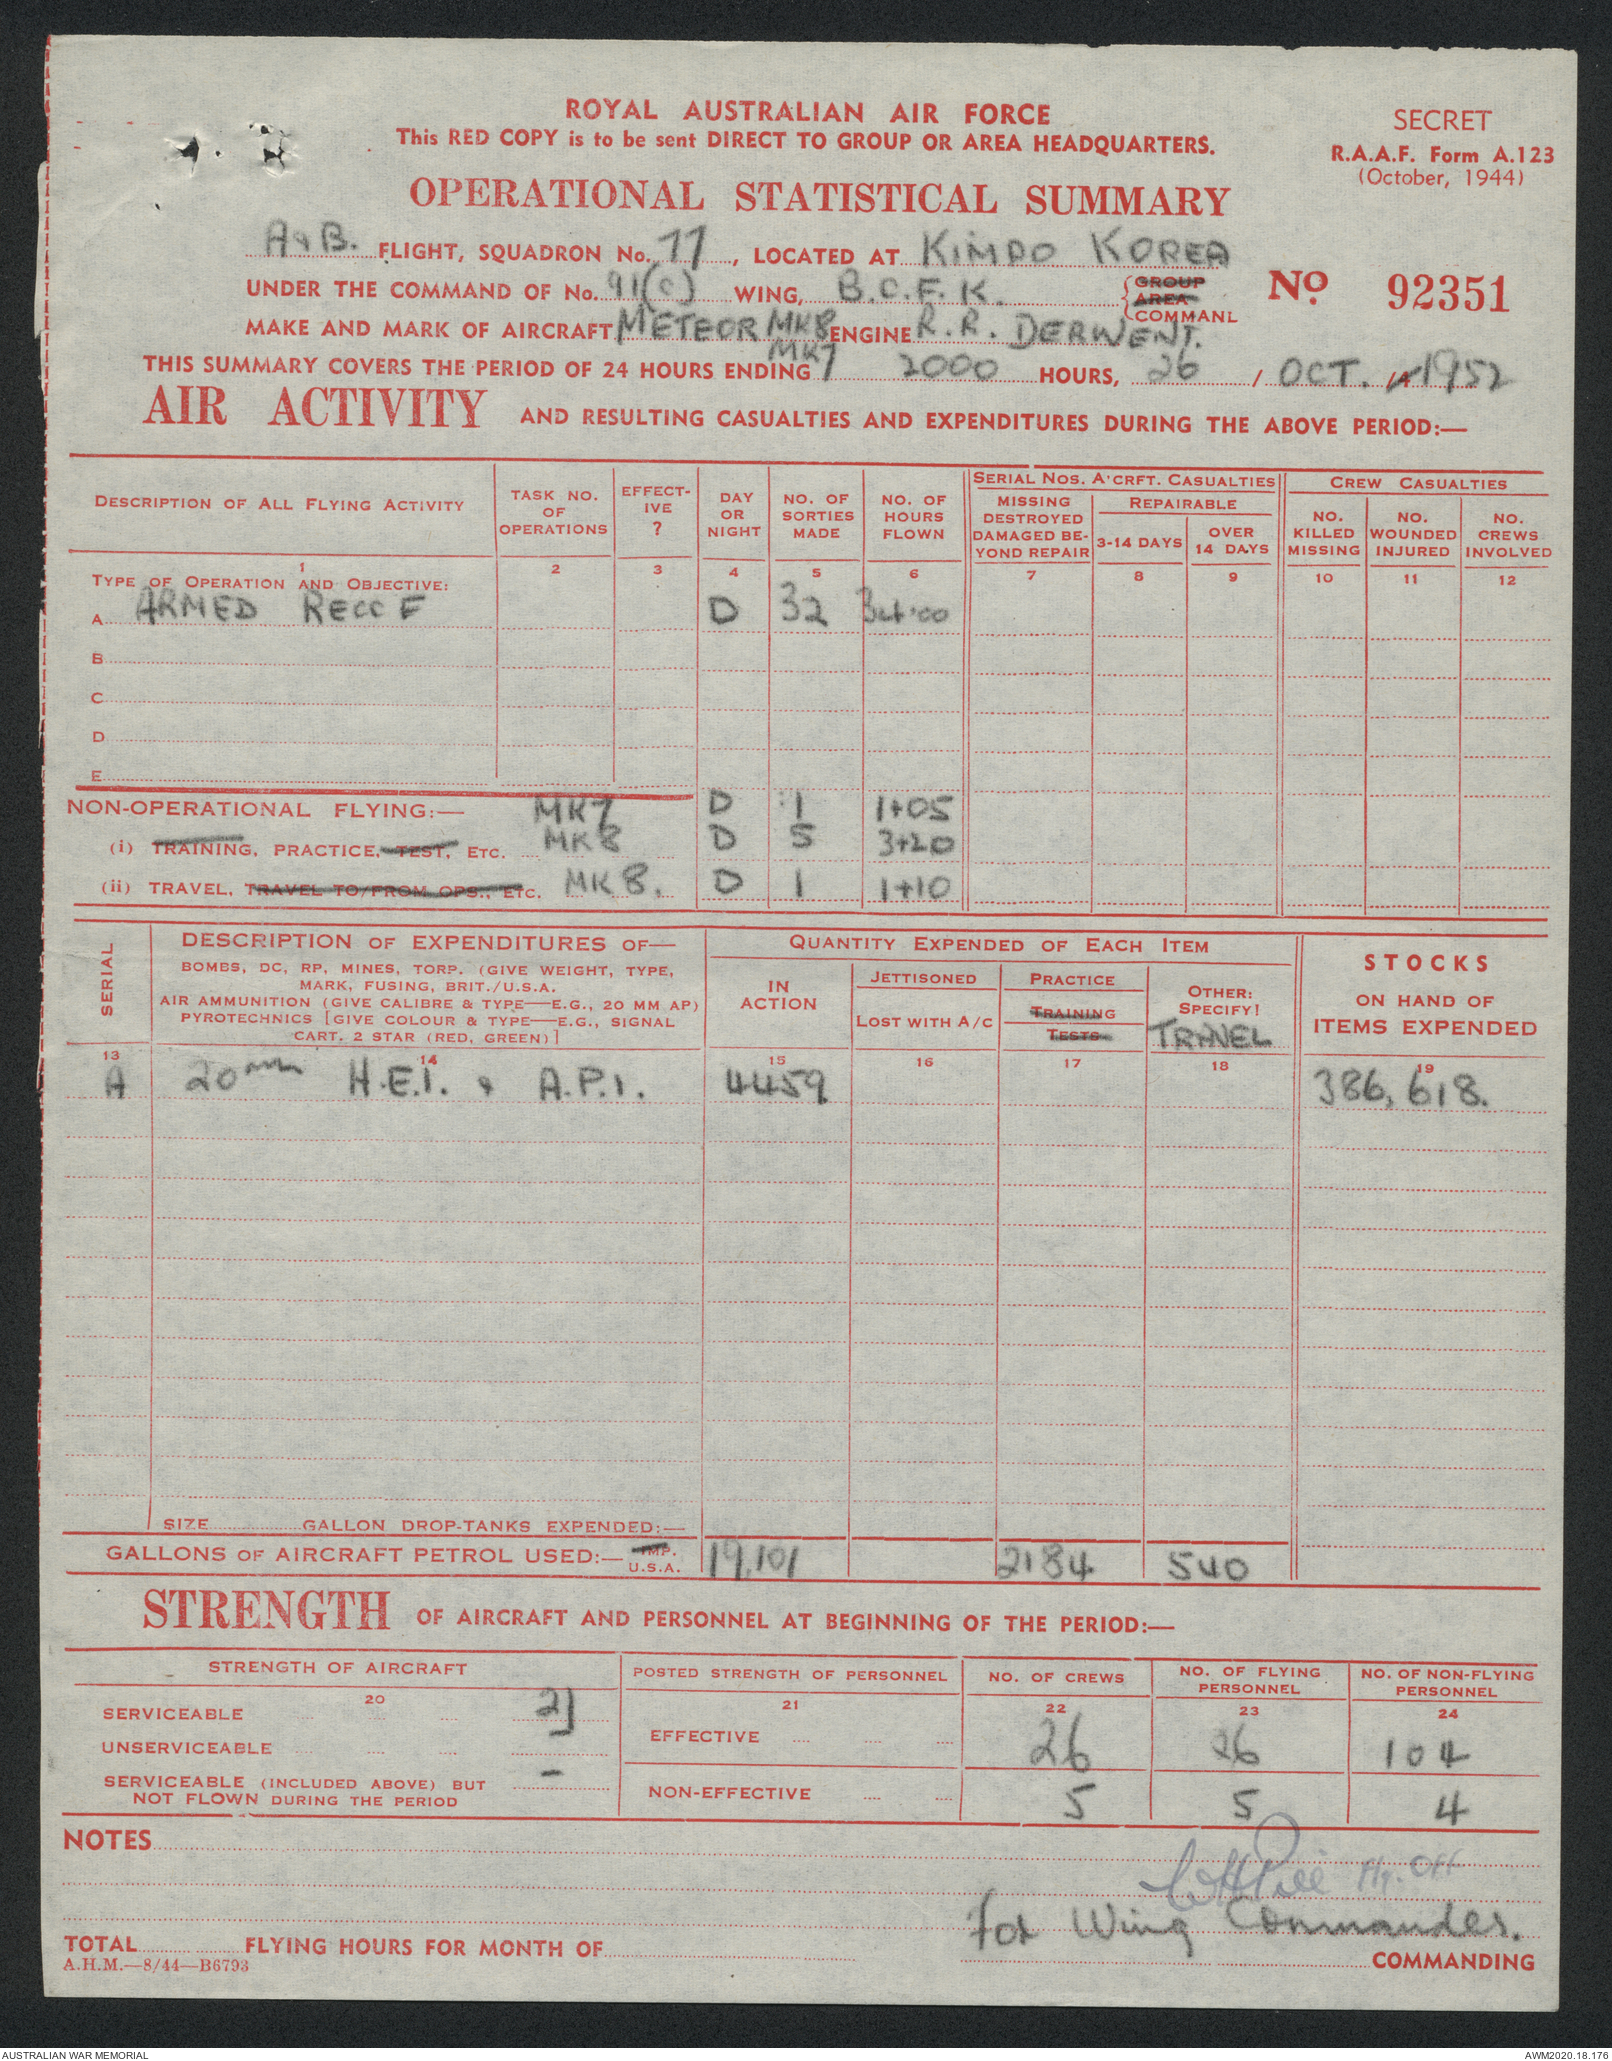 ROYAL AUSTRALIAN AIR FORCE
This RED COPY is to be sent DIRECT TO GROUP OR AREA HEADQUARTERS.
SECRET
R.A.A.F. Form A.123
(October, 1944)
OPERATIONAL STATISTICAL SUMMARY
A & B. FLIGHT, SQUADRON No. 77, LOCATED AT KIMPO KOREA
UNDER THE COMMAND OF No. 91(C) WING, B.C.F.K. GROUP AREA COMMAND
No. 92351
MAKE AND MARK OF AIRCRAFT METEOR MK8 MK7 ENGINE R.R. DERWENT.
THIS SUMMARY COVERS THE PERIOD OF 24 HOURS ENDING 2000 HOURS, 26 / OCT. / 1952
AIR ACTIVITY AND RESULTING CASUALTIES AND EXPENDITURES DURING THE ABOVE PERIOD:—
DESCRIPTION OF ALL FLYING ACTIVITY
TASK NO. OF OPERATIONS
EFFECT-IVE ?
DAY OR NIGHT
NO. OF SORTIES MADE
NO. OF HOURS FLOWN
SERIAL NOS. A'CRFT. CASUALTIES
MISSING DESTROYED DAMAGED BE-YOND REPAIR
REPAIRABLE
3-14 DAYS
OVER 14 DAYS
CREW CASUALTIES
NO. KILLED MISSING
NO. WOUNDED INJURED
NO. CREWS INVOLVED
1 2 3 4 5 6 7 8 9 10 11 12
TYPE OF OPERATION AND OBJECTIVE:
A ARMED RECCE D 32 34.00
B
C
D
E
NON-OPERATIONAL FLYING:— MK7 D 1 1+05
(i) TRAINING, PRACTICE, TEST, ETC. MK8 D 5 3+20
(ii) TRAVEL, TRAVEL TO/FROM OPS., ETC. MK8. D 1 1+10
SERIAL
DESCRIPTION OF EXPENDITURES OF—
BOMBS, DC, RP, MINES, TORP. (GIVE WEIGHT, TYPE,
MARK, FUSING, BRIT./U.S.A.
AIR AMMUNITION (GIVE CALIBRE & TYPE—E.G., 20 MM AP)
PYROTECHNICS [GIVE COLOUR & TYPE—E.G., SIGNAL
CART. 2 STAR (RED, GREEN)]
QUANTITY EXPENDED OF EACH ITEM
IN ACTION
JETTISONED
LOST WITH A/C
PRACTICE
TRAINING
TESTS
OTHER: SPECIFY!
TRAVEL
STOCKS
ON HAND OF
ITEMS EXPENDED
13 14 15 16 17 18 19
A 20mm H.E.I. & A.P.I. 4459 386,618.
SIZE GALLON DROP-TANKS EXPENDED:—
GALLONS OF AIRCRAFT PETROL USED:— IMP. U.S.A. 19,101 2184 540
STRENGTH OF AIRCRAFT AND PERSONNEL AT BEGINNING OF THE PERIOD:—
STRENGTH OF AIRCRAFT
POSTED STRENGTH OF PERSONNEL
NO. OF CREWS
NO. OF FLYING PERSONNEL
NO. OF NON-FLYING PERSONNEL
20 21 22 23 24
SERVICEABLE 21
UNSERVICEABLE
SERVICEABLE (INCLUDED ABOVE) BUT
NOT FLOWN DURING THE PERIOD –
EFFECTIVE 26 26 104
NON-EFFECTIVE 5 5 4
NOTES
Flg. Off
for Wing Commander.
TOTAL FLYING HOURS FOR MONTH OF
COMMANDING
A.H.M.—8/44—B6793
AUSTRALIAN WAR MEMORIAL
AWM2020.18.176